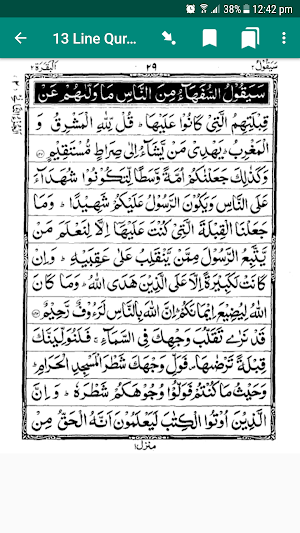 38% 12:42 pm
13 Line Qur...
سَيَقُولُ ٢ ٢٩ اَلْبَقَرَة ٢
سَيَقُوْلُ السُّفَهَآءُ مِنَ النَّاسِ مَا وَلّٰىهُمْ عَنْ
قِبْلَتِهِمُ الَّتِيْ كَانُوْا عَلَيْهَا ؕ قُلْ لِّلّٰهِ الْمَشْرِقُ وَ
الْمَغْرِبُ ؕ يَهْدِيْ مَنْ يَّشَآءُ اِلٰى صِرَاطٍ مُّسْتَقِيْمٍ
وَكَذٰلِكَ جَعَلْنٰكُمْ اُمَّةً وَّسَطًا لِّتَكُوْنُوْا شُهَدَآءَ
عَلَى النَّاسِ وَيَكُوْنَ الرَّسُوْلُ عَلَيْكُمْ شَهِيْدًا ؕ وَمَا
جَعَلْنَا الْقِبْلَةَ الَّتِيْ كُنْتَ عَلَيْهَآ اِلَّا لِنَعْلَمَ مَنْ
يَّتَّبِعُ الرَّسُوْلَ مِمَّنْ يَّنْقَلِبُ عَلٰى عَقِبَيْهِ ؕ وَاِنْ
كَانَتْ لَكَبِيْرَةً اِلَّا عَلَى الَّذِيْنَ هَدَى اللّٰهُ ؕ وَمَا كَانَ
اللّٰهُ لِيُضِيْعَ اِيْمَانَكُمْ ؕ اِنَّ اللّٰهَ بِالنَّاسِ لَرَءُوْفٌ رَّحِيْمٌ
قَدْ نَرٰى تَقَلُّبَ وَجْهِكَ فِي السَّمَآءِ ۚ فَلَنُوَلِّيَنَّكَ
قِبْلَةً تَرْضٰىهَا ۪ فَوَلِّ وَجْهَكَ شَطْرَ الْمَسْجِدِ الْحَرَامِ ؕ
وَحَيْثُ مَا كُنْتُمْ فَوَلُّوْا وُجُوْهَكُمْ شَطْرَهٗ ؕ وَاِنَّ
الَّذِيْنَ اُوْتُوا الْكِتٰبَ لَيَعْلَمُوْنَ اَنَّهُ الْحَقُّ مِنْ
منزل ١